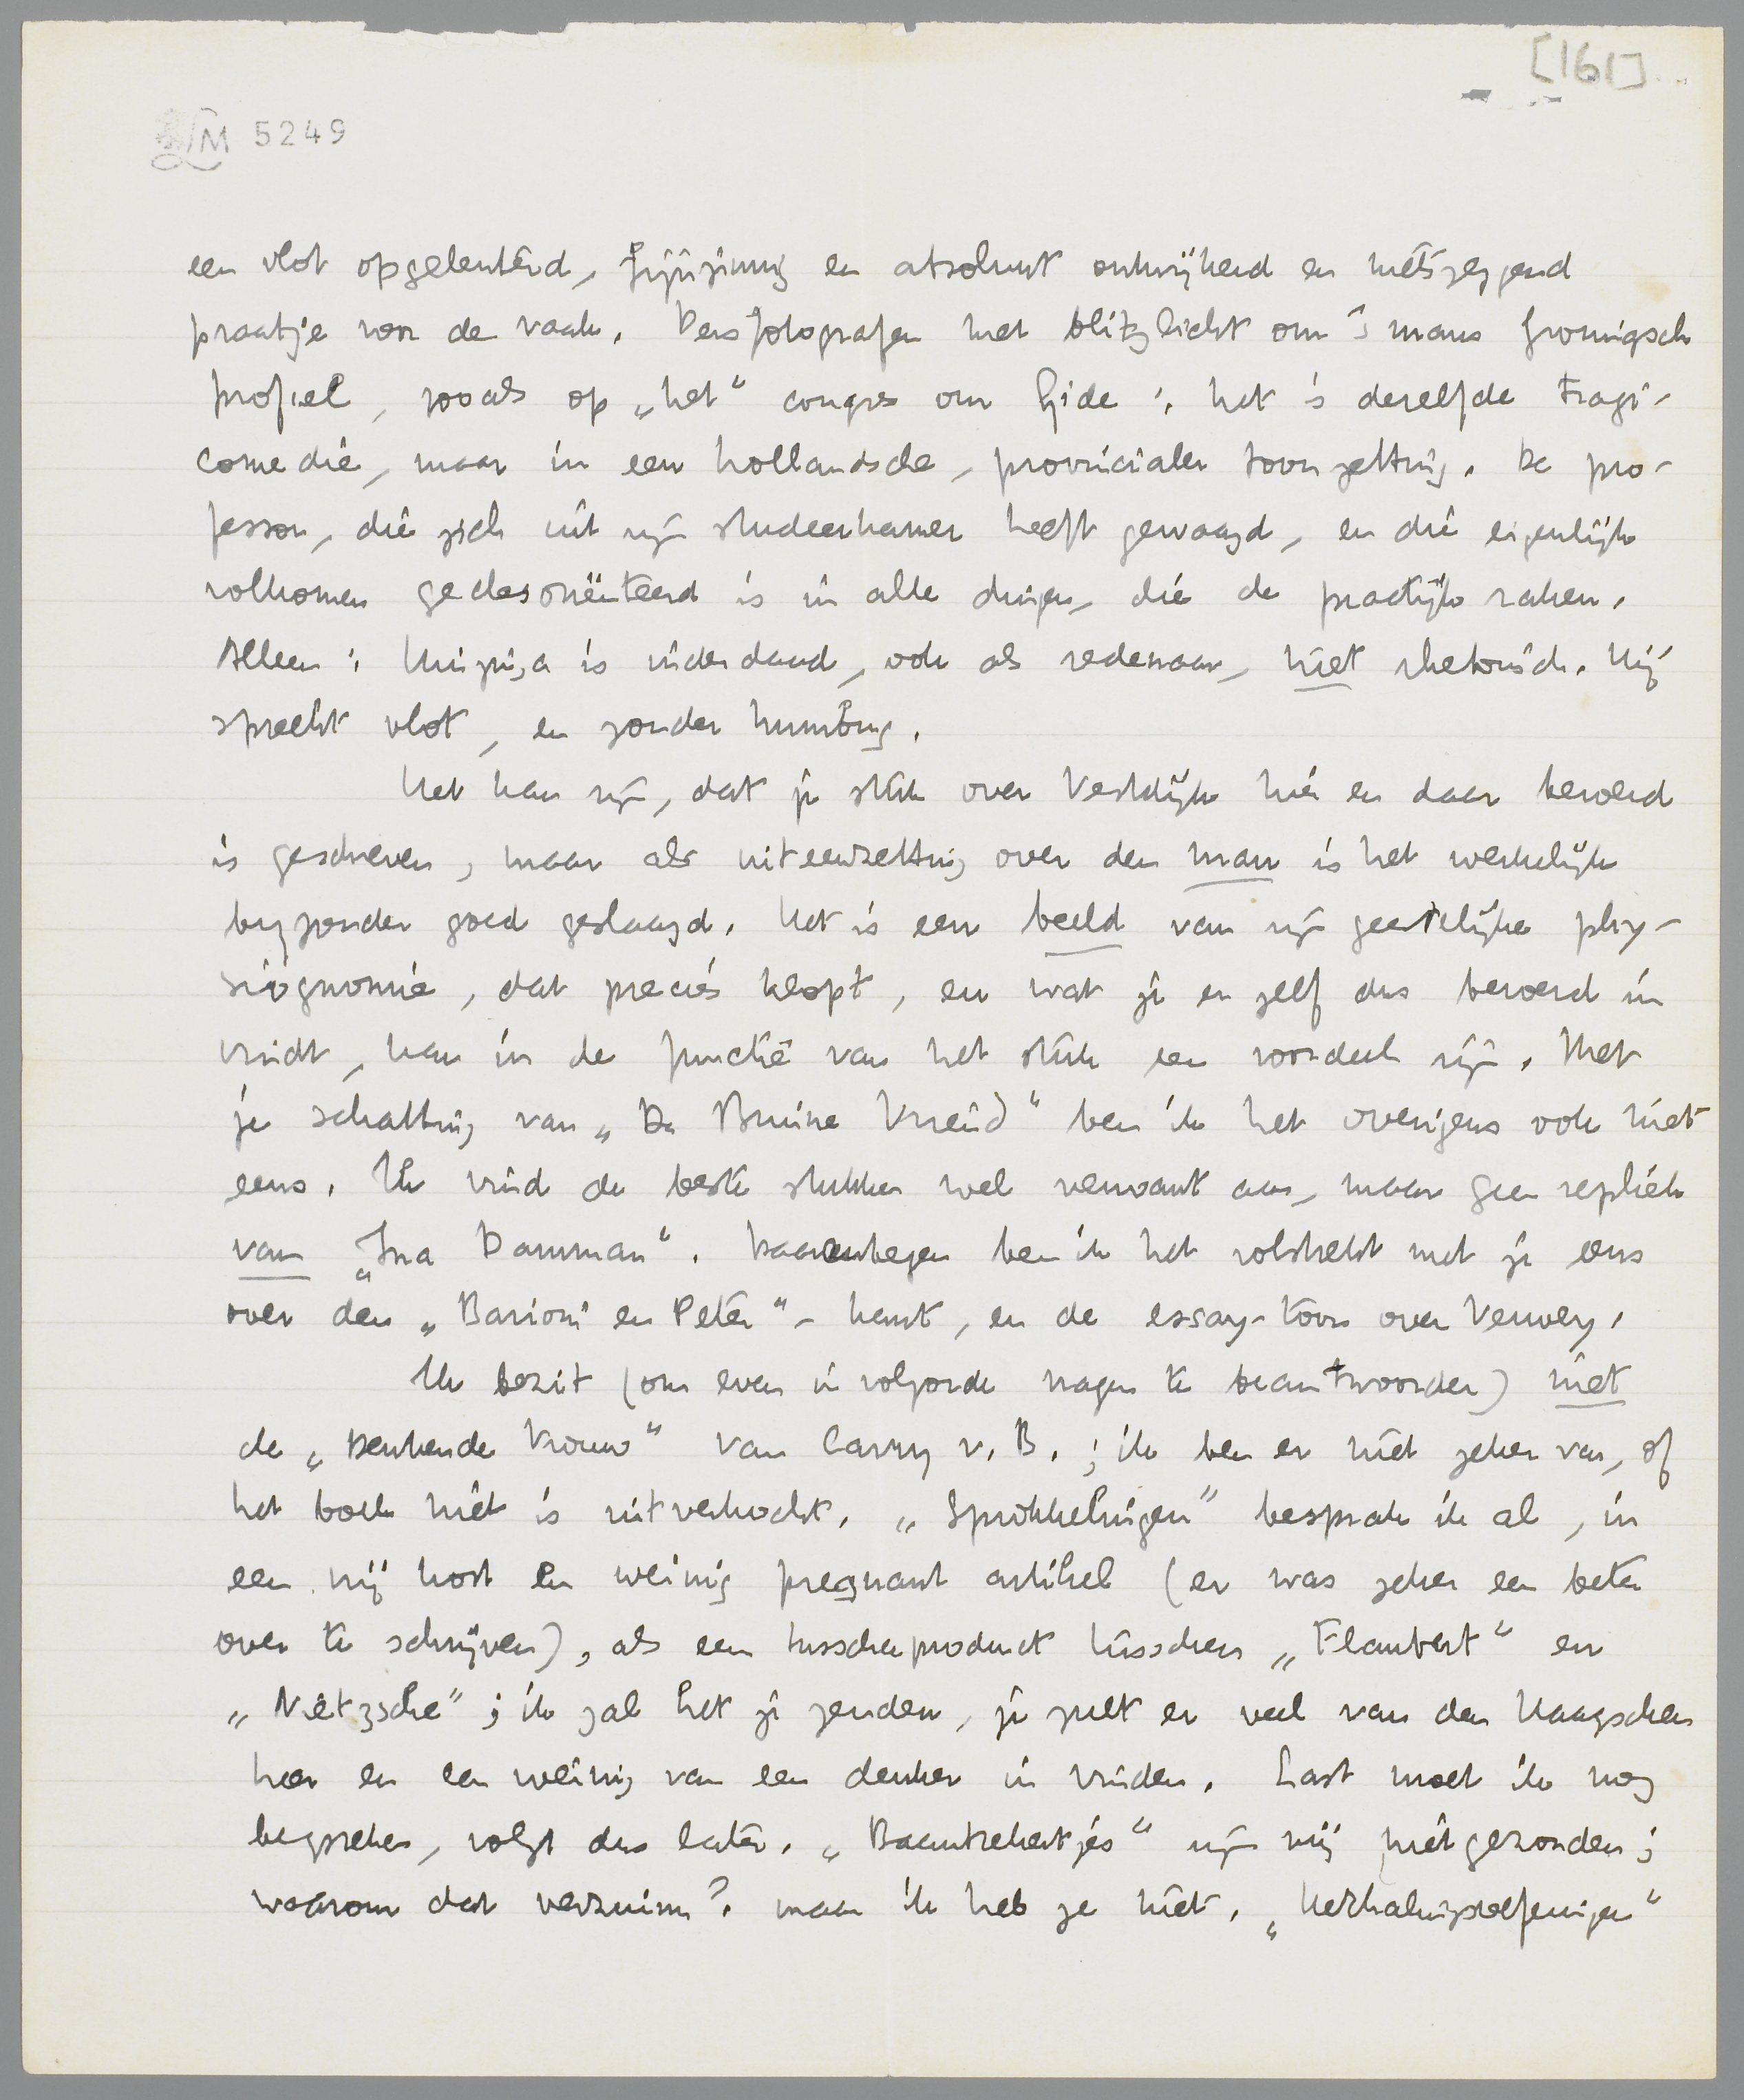 [161]
LM 5249
een vlot opgelenterd, fijnzinnig en absoluut ontwijkend en nietszeggend
praatje voor de vaak. Persfotografen met blitzlicht om 's mans Groningsch
profiel, zooals op „het" congres om Gide; het is dezelfde tragi-
comedie, maar in een hollandsche, provincialer toonzetting. De pro-
fessor, die zich uit zijn studeerkamer heeft gewaagd, en die eigenlijk
volkomen gedesoriënteerd is in alle dingen, die de practijk raken.
Alleen: Huizinga is inderdaad, ook als redenaar, niet rhetorisch. Hij
spreekt vlot, en zonder humbug.
Het kan zijn, dat je stuk over Vestdijk hier en daar beroerd
is geschreven, maar als uiteenzetting over den man is het werkelijk
byzonder goed geslaagd. Het is een beeld van zijn geestelijke phy-
siognomie, dat precies klopt, en wat je er zelf dus beroerd in
vindt, kan in de functie van het stuk een voordeel zijn. Met
je schatting van „De Bruine Vriend" ben ik het overigens ook niet
eens. Ik vind de beste stukken wel verwant aan, maar geen repliek
van „Ina Damman". Daarentegen ben ik het volstrekt met je eens
over den „Barioni en Peter"-kant, en de essay-toon over Verwey.
Ik bezit (om even in volgorde vragen te beantwoorden) niet
de „Denkende Vrouw" van Carry v. B.; ik ben er niet zeker van, of
het boek niet is uitverkocht. „Sprokkelingen" besprak ik al, in
een vrij kort en weinig pregnant artikel (er was zeker een beter
over te schrijven), als een tusschenproduct tusschen „Flaubert" en
„Nietzsche"; ik zal het je zenden, je zult er veel van den Haagschen
heer en een weinig van een denker in vinden. Last moet ik nog
bespreken, volgt dus later. „Baantrekertjes" zijn mij niet gezonden;
waarom dat verzuim? maar ik heb ze niet. „Herhalingsoefeningen"